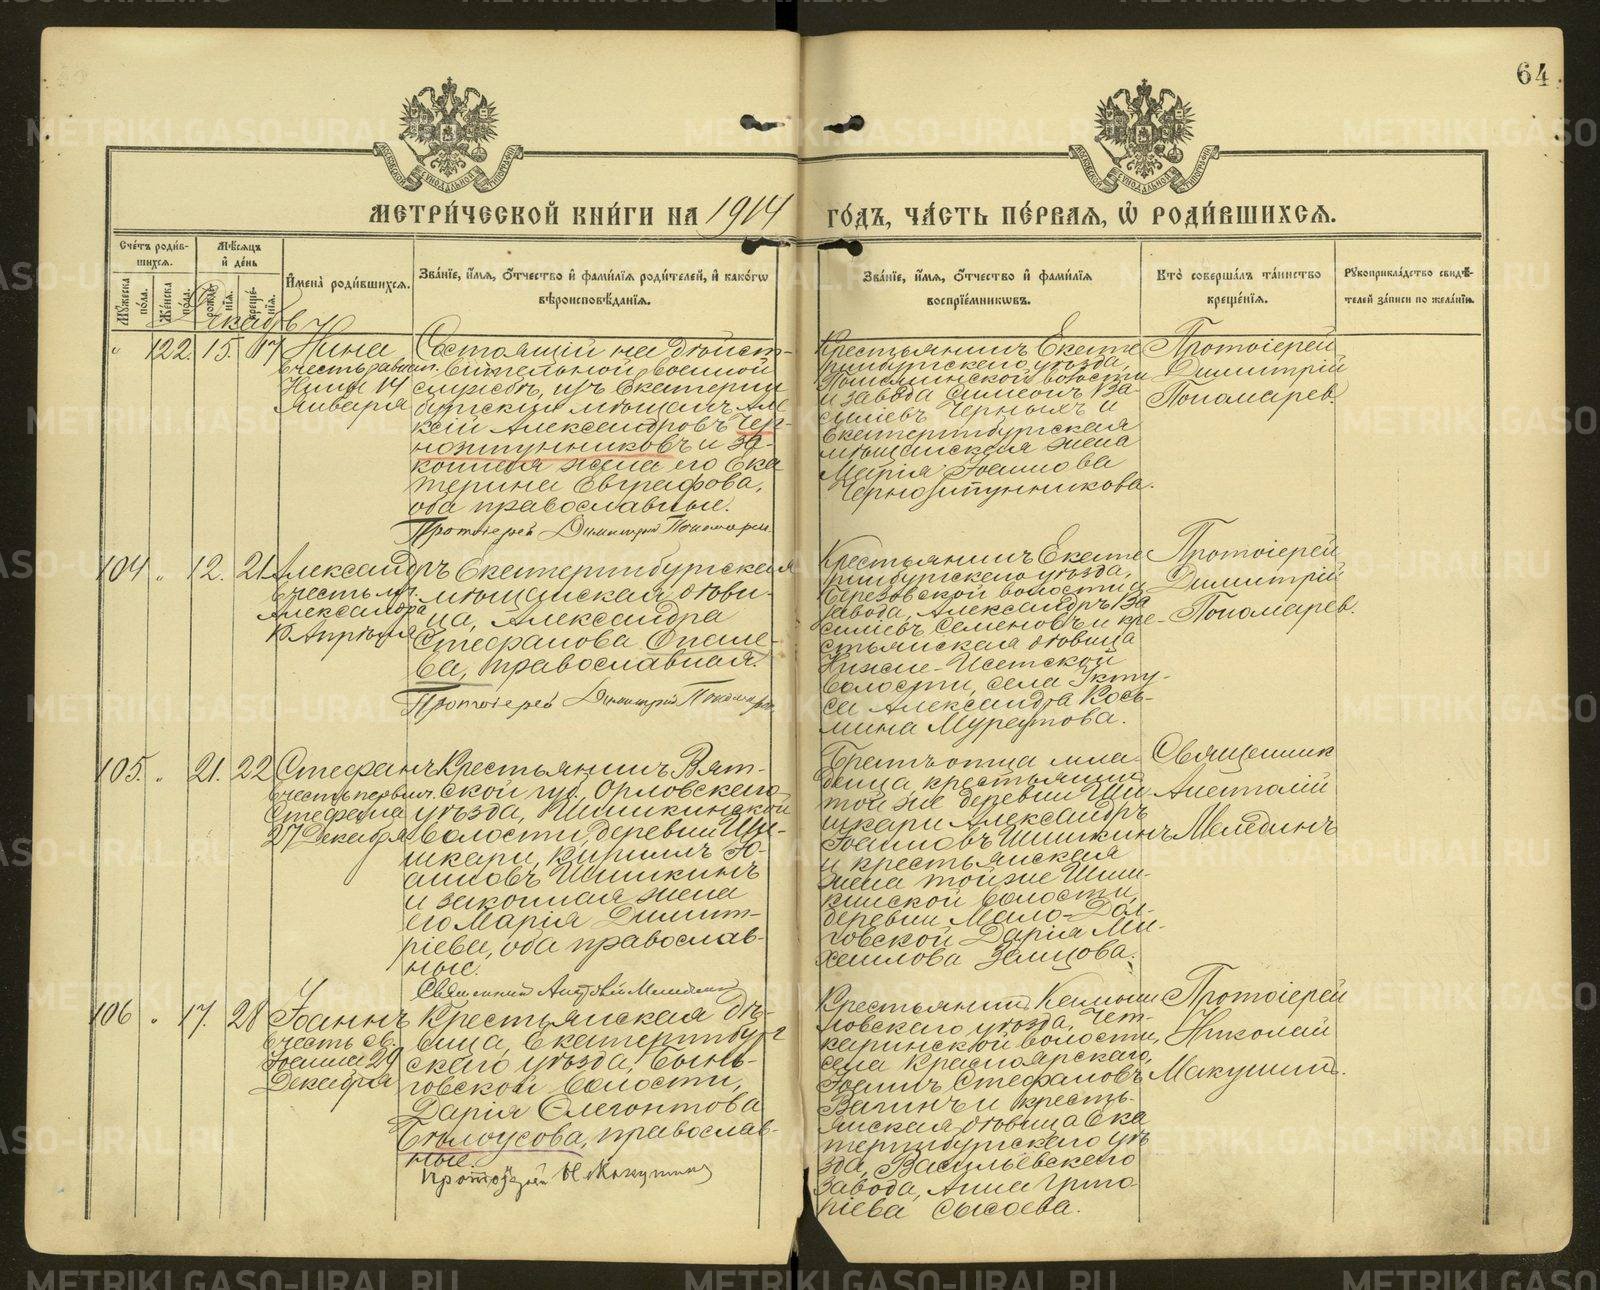 64
МЕТРИ́ЧЕСКОЙ КНИ́ГИ НА 1914 ГО́ДЪ, ЧА́СТЬ ПЕ́РВАѦ, Ѡ҆ РОДИ́ВШИХСѦ.
Сче́тъ роди́вшихсѧ.
Мѣ́сѧцъ и҆ де́нь
И҆мена̀ роди́вшихсѧ.
Зва́нїе, и҆́мѧ, ѻ҆́тчество и҆ фами́лїѧ роди́телей, и҆ како́гѡ
вѣроисповѣ́данїѧ.
Зва́нїе, и҆́мѧ, ѻ҆́тчество и҆ фами́лїѧ
воспрїе́мникѡвъ.
Кто̀ соверша́лъ та́инство
креще́нїѧ.
Рꙋкоприкла́дство свидѣ́-
телей за́писи по жела́нїю.
Мꙋ́жеска по́ла.
Же́нска по́ла.
рожде́нїѧ.
креще́нїѧ.
Декабрь
122. 15. 17
Нина
Нины 14
Января
Состоящій на дѣйст-
вительной военной
службѣ, изъ Екатерин
бургскихъ мѣщанъ Але
ксій Александровъ Чер-
ножгунниковъ и за-
конная жена его Ека
терина Евграфова,
оба православные.
Протоіерей Димитрій Пономаревъ
Крестьянинъ Екате
ринбургскаго уѣзда,
волости
и завода Симеонъ Ва-
сильевъ Черныхъ и
Екатеринбургская
мѣщанская жена
Марія Іоаннова
Протоіерей
Димитрій
Пономарев.
104 " 12. 21
Александръ
въ честь мч.
Александра
10 Апрѣля
Екатеринбургская
мѣщанская дѣви-
ца, Александра
Стефанова Опале-
ва, православная.
Протоіерей Димитрій Пономаревъ
Крестьянинъ Екате
ринбургскаго уѣзда,
Березовской волости и
завода, Александръ Ва
сильевъ Семеновъ и кре-
стьянская дѣвица
Нижне-Исетской
волости, села Укту-
са Александра Кось-
мина
Протоіерей
Димитрій
Пономарев.
105. " 21. 22
Стефанъ
въ честь первом.
Стефана
27 Декабря
Крестьянинъ Вят-
ской губ. Орловскаго
уѣзда, Шишкинской
волости, деревни Ши-
шкари, Кириллъ Іо-
анновъ Шишкинъ
и законная жена
его Марія Димит-
ріева, оба православ-
ные.
Священникъ Анатолій Мелединъ
Братъ отца мла-
денца, крестьянин
той же деревни Ши
шкари Александръ
Іоанновъ Шишкинъ
и крестьянская
жена той же Шиш-
кинской волости,
деревни Мало-Дол-
говской Дарія Ми-
хаилова Земцова.
Священник
Анатолій
Мелединъ
106 " 17. 28
Іоаннъ
въ честь св.
Іоанна 29
Декабря
Крестьянская дѣ-
вица, Екатеринбург
скаго уѣзда, Бынь-
говской волости,
Дарія Олегонтова
Бѣлоусова, православ-
ные.
Протоіерей Н Макушинъ
Крестьянин. Камыш
ловскаго уѣзда, Чет-
каринской волости,
села Красноярскаго,
Іоаннъ Стефановъ
Вагинъ и кресть-
янская дѣвица Ека
теринбургскаго уѣ
зда, Васильевскаго
завода, Анна Григо-
ріева Сысоева.
Протоіерей
Николай
Макушин.
METRIKI.GASO-URAL.RU